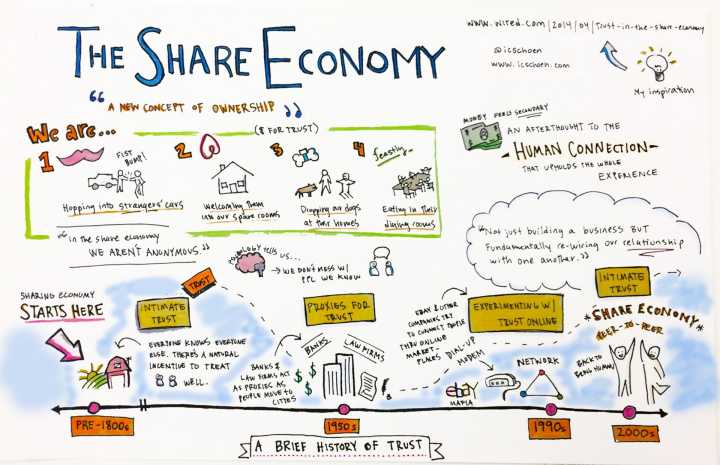 THE SHARE ECONOMY
"A NEW CONCEPT OF OWNERSHIP"
www.wired.com/2014/04/trust-in-the-share-economy
@icschoen
www.icschoen.com
My inspiration
We are...
(& FOR TRUST)
1
FIST BUMP!
Hopping into strangers' cars
2
Welcoming them
into our spare rooms
3
Dropping our dogs
at their homes
4
feastly
Eating in their
dining rooms
MONEY FEELS SECONDARY
AN AFTERTHOUGHT TO THE
HUMAN CONNECTION
THAT UPHOLDS THE WHOLE
EXPERIENCE
"in the share economy
WE AREN'T ANONYMOUS."
TELLS US...
WE DON'T MESS W/
PPL WE KNOW
"Not just building a business BUT
Fundamentally re-wiring our relationship
with one another."
SHARING ECONOMY
STARTS HERE
TRUST
INTIMATE
TRUST
EVERYONE KNOWS EVERYONE
ELSE. THERE'S A NATURAL
INCENTIVE TO TREAT
WELL.
PROXIES FOR
TRUST
BANKS
LAW FIRMS
BANKS &
LAW FIRMS ACT
AS PROXIES AS
PEOPLE MOVE TO
CITIES
EBAY & OTHER
COMPANIES TRY
TO CONNECT PEOPLE
THRU ONLINE
MARKET-
PLACES
EXPERIMENTING W/
TRUST ONLINE
DIAL-UP
MODEM
ebay
MAFIA
NETWORK
INTIMATE
TRUST
SHARE ECONOMY
PEER-TO-PEER
BACK TO
BEING HUMAN
PRE-1800s
1950s
1990s
2000s
A BRIEF HISTORY OF TRUST